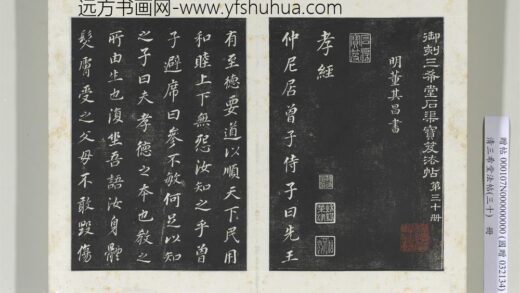 远方书画网-www.yfshuhua.com
御刻三希堂石渠寶笈法帖第三十册
明董其昌書
孝經
仲尼居曾子侍子曰先王
有至德要道以順天下民用
和睦上下無怨汝知之乎曾
子避席曰參不敏何足以知
之子曰夫孝德之本也教之
所由生也復坐吾語汝身體
髮膚受之父母不敢毀傷
贈帖 000107N000000000 (國贈 032134)
清三希堂法帖(三十) 冊